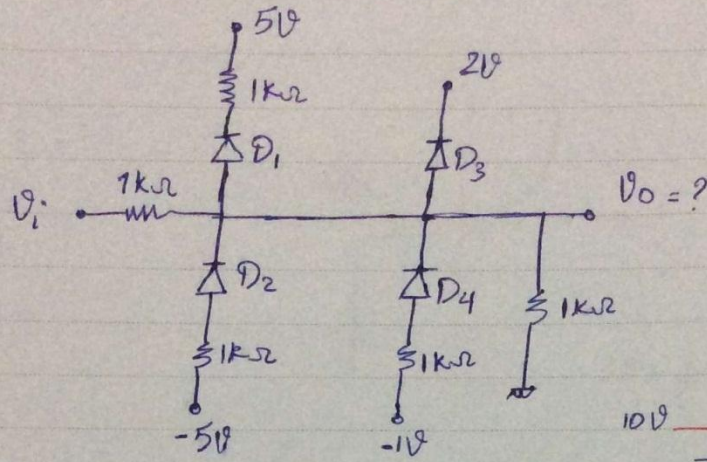 5v
1kΩ
2v
D₁
D₃
1kΩ
vᵢ
v₀ = ?
D₂
D₄
1kΩ
1kΩ
1kΩ
-5v
-1v
10v